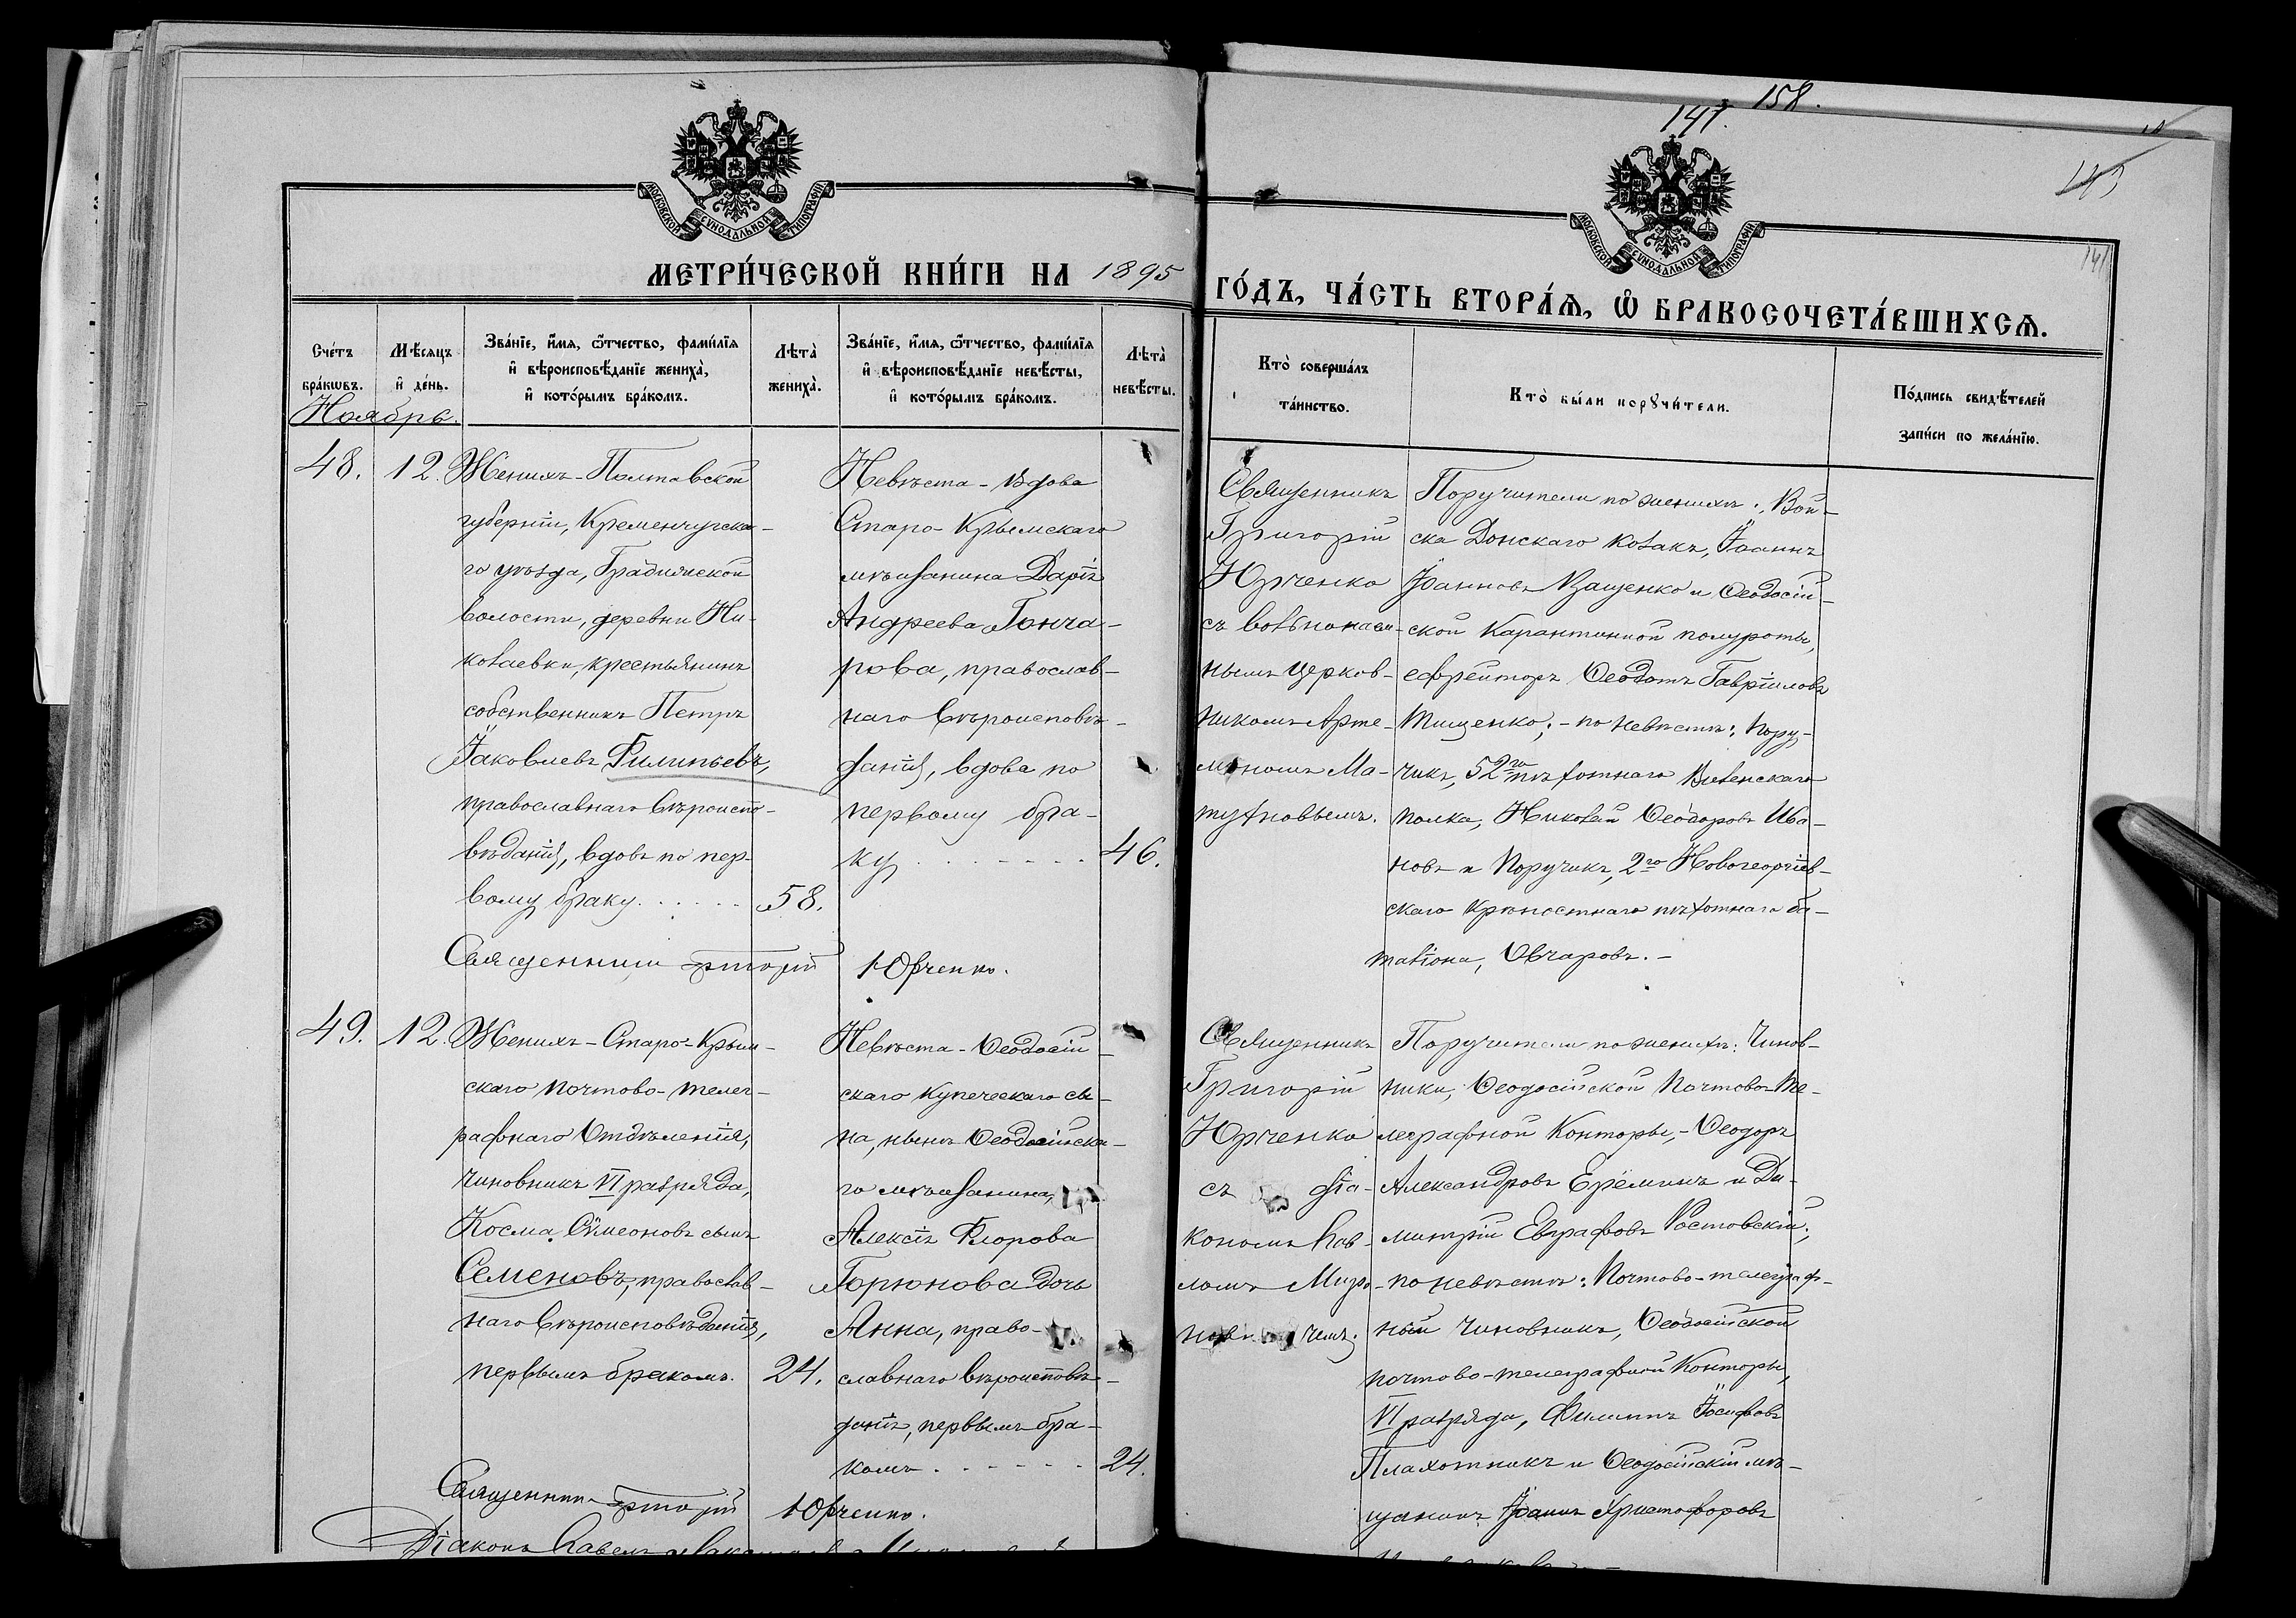 158.
141.
145
141
МОСКОВСКОЙ СѴНОДАЛЬНОЙ ТИПОГРАФІИ
МОСКОВСКОЙ СѴНОДАЛЬНОЙ ТИПОГРАФІИ
МЕТРИ́ЧЕСКОЙ КНИ́ГИ НА 1895
ГО́ДЪ, ЧА́СТЬ ВТОРА́Ѧ, Ѡ БРАКОСОЧЕТА́ВШИХСѦ.
Сче́тъ бра́кѡвъ.
Мѣ́сяцъ и де́нь.
Зва́нїе, и́мя, ѻ́тчество, фами́лїя и вѣроисповѣ́данїе жениха̀, и кото́рымъ бра́комъ.
Лѣта̀ жениха̀.
Зва́нїе, и́мя, ѻ́тчество, фами́лїя и вѣроисповѣ́данїе невѣ́сты, и кото́рымъ бра́комъ.
Лѣта̀ невѣ́сты.
Кто̀ соверша́лъ та́инство.
Кто̀ бы́ли порꙋчи́тели.
По́дпись свидѣ́телей за́писи по жела́нїю.
Ноябрь.
48. 12.
Женихъ - Полтавской
губерніи, Кременчугска-
го уѣзда, Градижской
волости, деревни Ни-
колаевки, крестьянинъ
собственникъ Петръ
Іаковлевъ Филипьевъ,
православнаго вѣроиспо-
вѣданія, вдовъ по пер-
вому браку . . . . . . 58.
Невѣста - вдова
Старо-Крымскаго
мѣщанина Дарія
Андреева Гонча-
рова, православ-
наго вѣроисповѣ-
данія, вдова по
первому бра-
ку . . . . . . . 46.
Священникъ
Григорій
Юрченко
съ вольнонаем-
нымъ церков-
никомъ Арте-
міемъ Ма-
тухновымъ.
Поручители по женихѣ: Вой-
ска Донскаго козакъ, Іоаннъ
Іоанновъ Ващенко и Ѳеодосій-
ской Карантинной полуроты,
ефрейторъ Ѳеодотъ Гавріиловъ
Тищенко; - по невѣстѣ: Пору-
чикъ, 52го пѣхотнаго Виленскаго
полка, Николай Ѳеодоровъ Ива-
новъ и Поручикъ, 2го Новогеоргіев-
скаго крѣпостнаго пѣхотнаго ба-
таліона, Овчаровъ. -
Священникъ Григорій Юрченко.
49. 12.
Женихъ - Старо-Крым-
скаго почтово-телег-
рафнаго Отдѣленія,
чиновникъ VI разряда,
Косма Сѵмеоновъ сынъ
Семеновъ, православ-
наго вѣроисповѣданія,
первымъ бракомъ. 24.
Невѣста - Ѳеодосій-
скаго купеческаго сы-
на, нынѣ Ѳеодосійска-
го мѣщанина,
Алексія Флорова
Горюнова дочь
Анна, право-
славнаго вѣроисповѣ-
данія, первымъ бра-
комъ . . . . . . . 24.
Священникъ
Григорій
Юрченко
съ діа-
кономъ Пав-
ломъ
Поручители по женихѣ: Чинов-
ники, Ѳеодосійской Почтово-те-
леграфной Конторы, - Ѳеодоръ
Александровъ Ерёминъ и Ди-
митрій Евграфовъ Ростовскій;
по невѣстѣ: Почтово-телеграф-
ный чиновникъ, Ѳеодосійской
почтово-телеграфной Конторы,
VI разряда, Филиппъ Іосифовъ
Плахотникъ и Ѳеодосійскій мѣ-
щанинъ Іоаннъ Христофоровъ
Священникъ Григорій Юрченко.
Діаконъ Павелъ